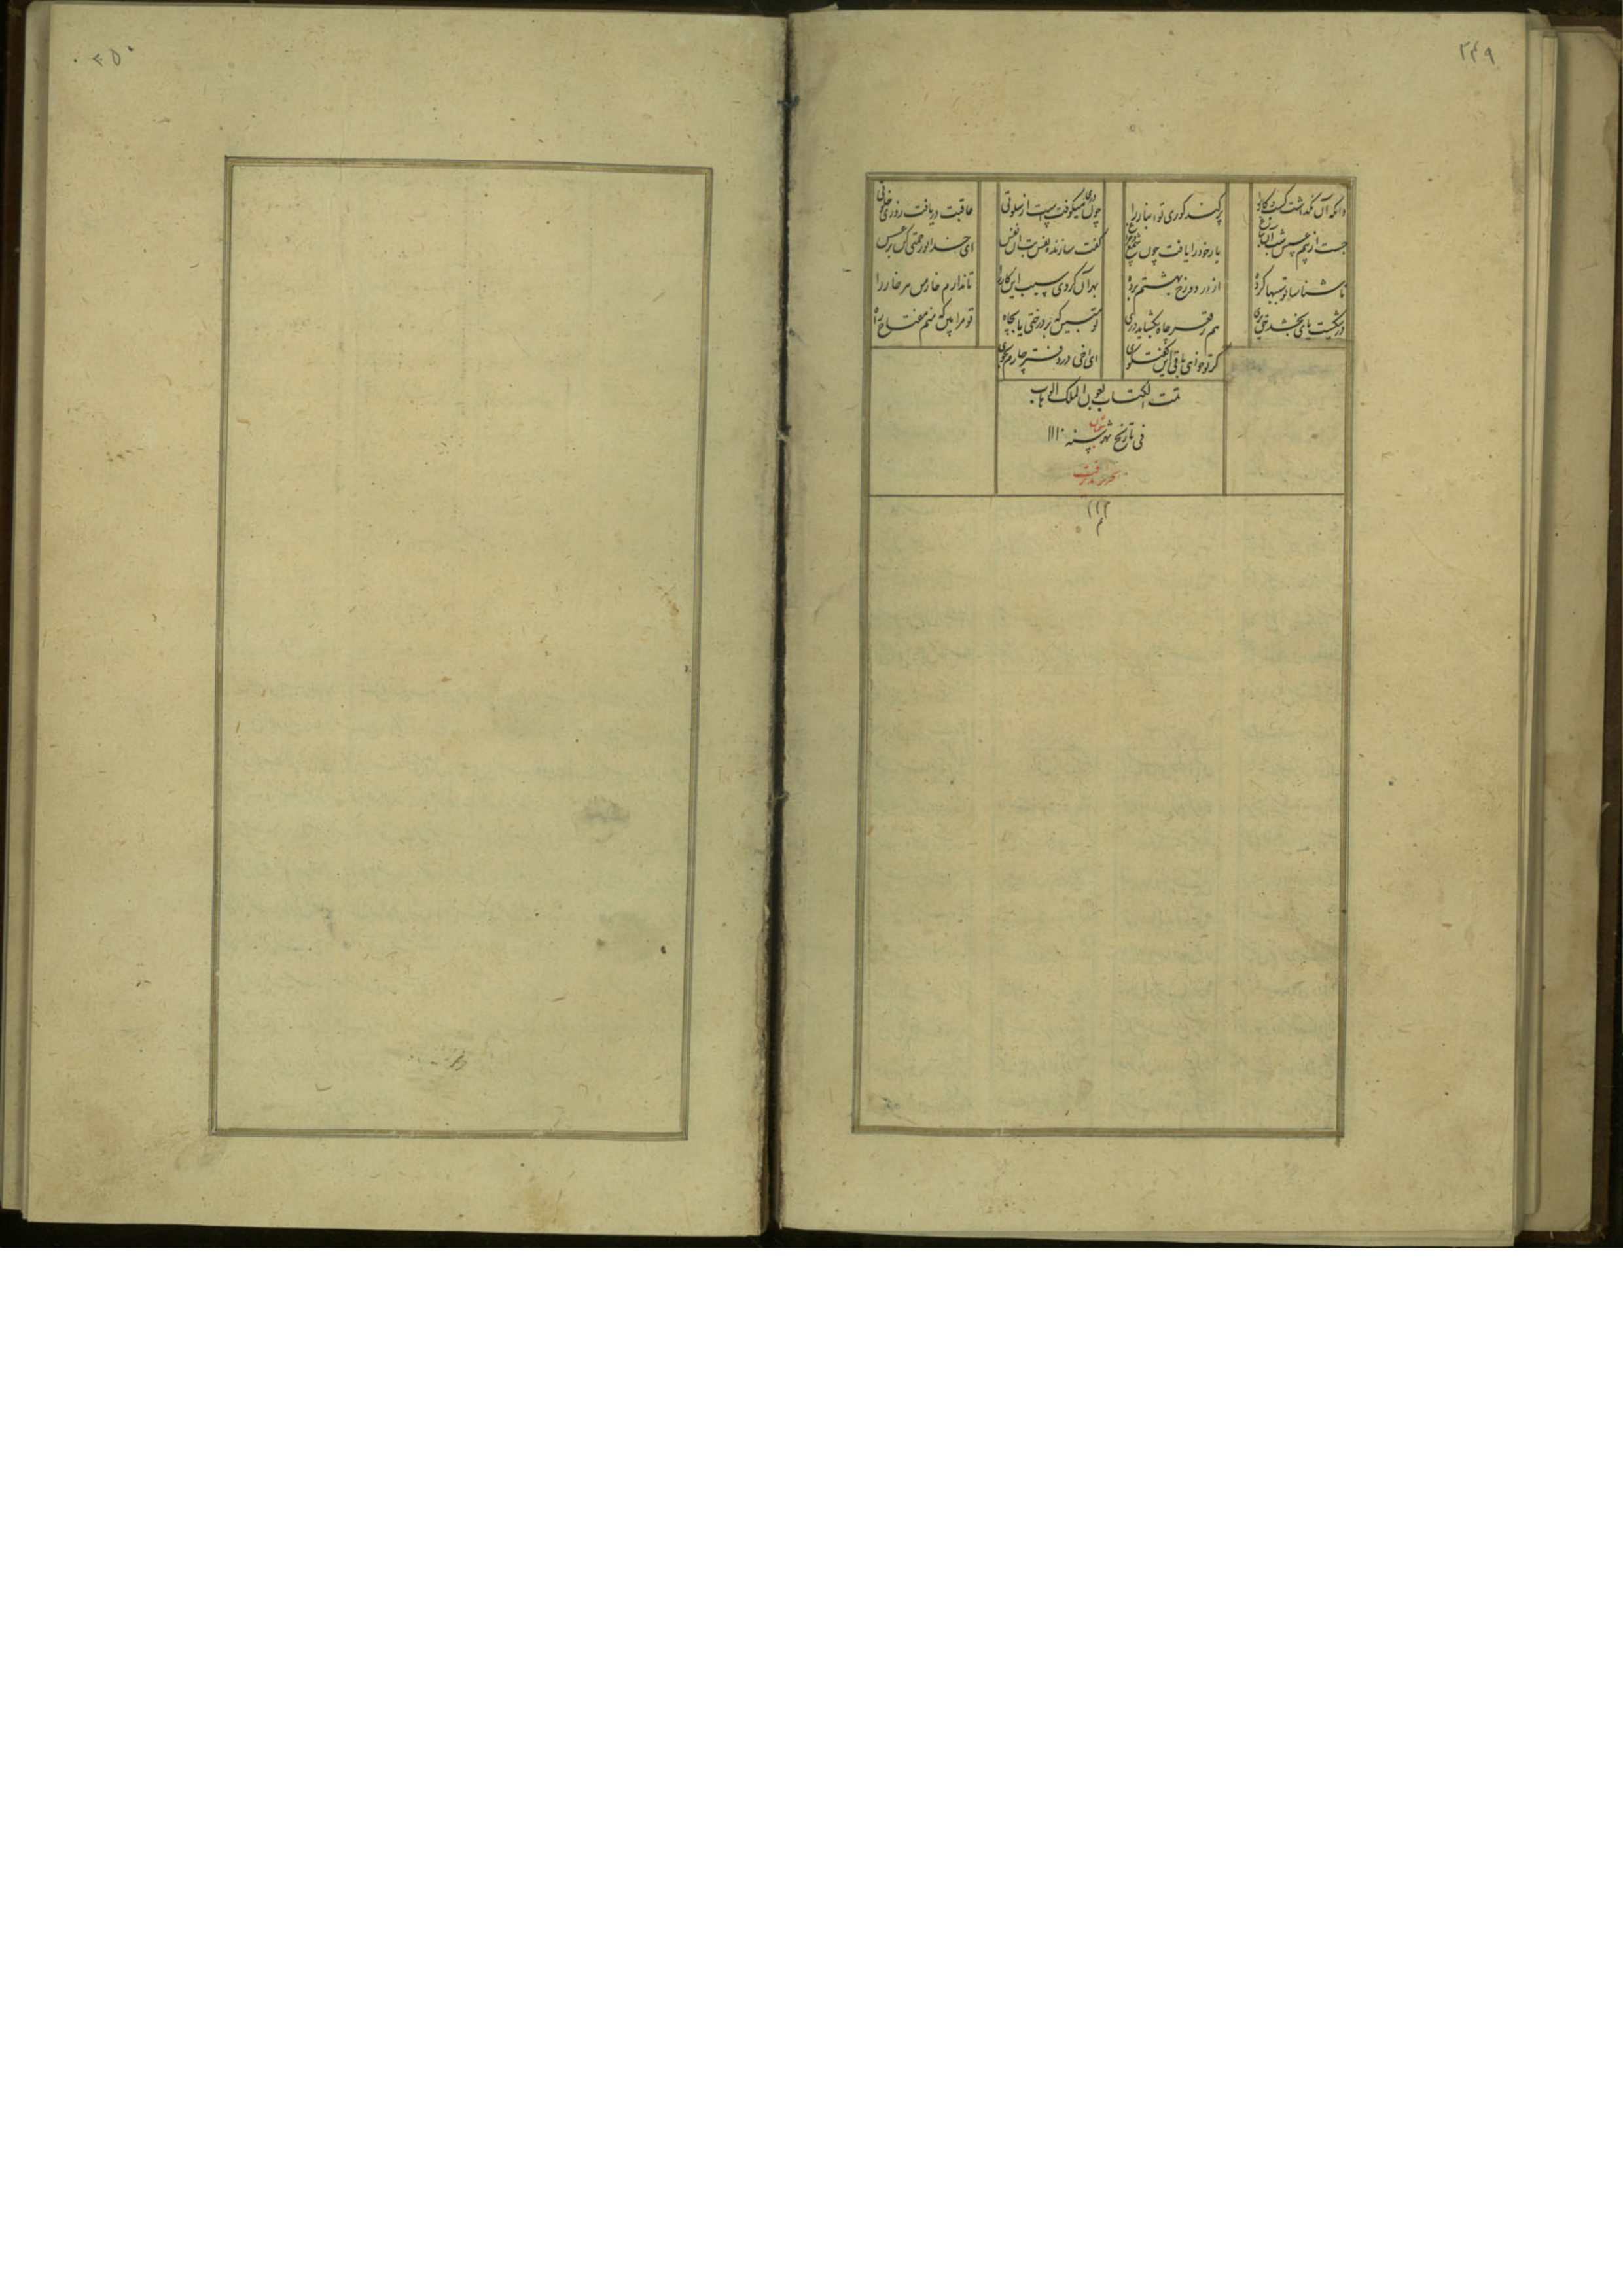 ۲۴۹
وانکه آن نگذاشت کشت و کار را پر کند کوری تو انبار را چون دری میکوفت پیوست از سلوتی عاقبت دریافت روزی خلوتی
جست از بیم عسس شب او بباغ یار خود را یافت چون شمع و چراغ گفت سازنده سبب را آن نفس ای خدا تو رحمتی کن بر عسس
ناشناسا تو سببها کرده از در دوزخ بهشتم برده بهر آن کردی سبب این کار را تا ندارم خار من هر خار را
در شکست پای بخشد حق پری هم ز قعر چاه بگشاید دری تو مبین که بر درختی یا بچاه تو مرا بین که منم مفتاح راه
گر تو خواهی باقی این گفتگوی ای اخی در دفتر چارم بجوی
تمت الکتاب بعون الملک الوهاب
فی تاریخ شهر سنه ۱۱۱۰
۲۵۰